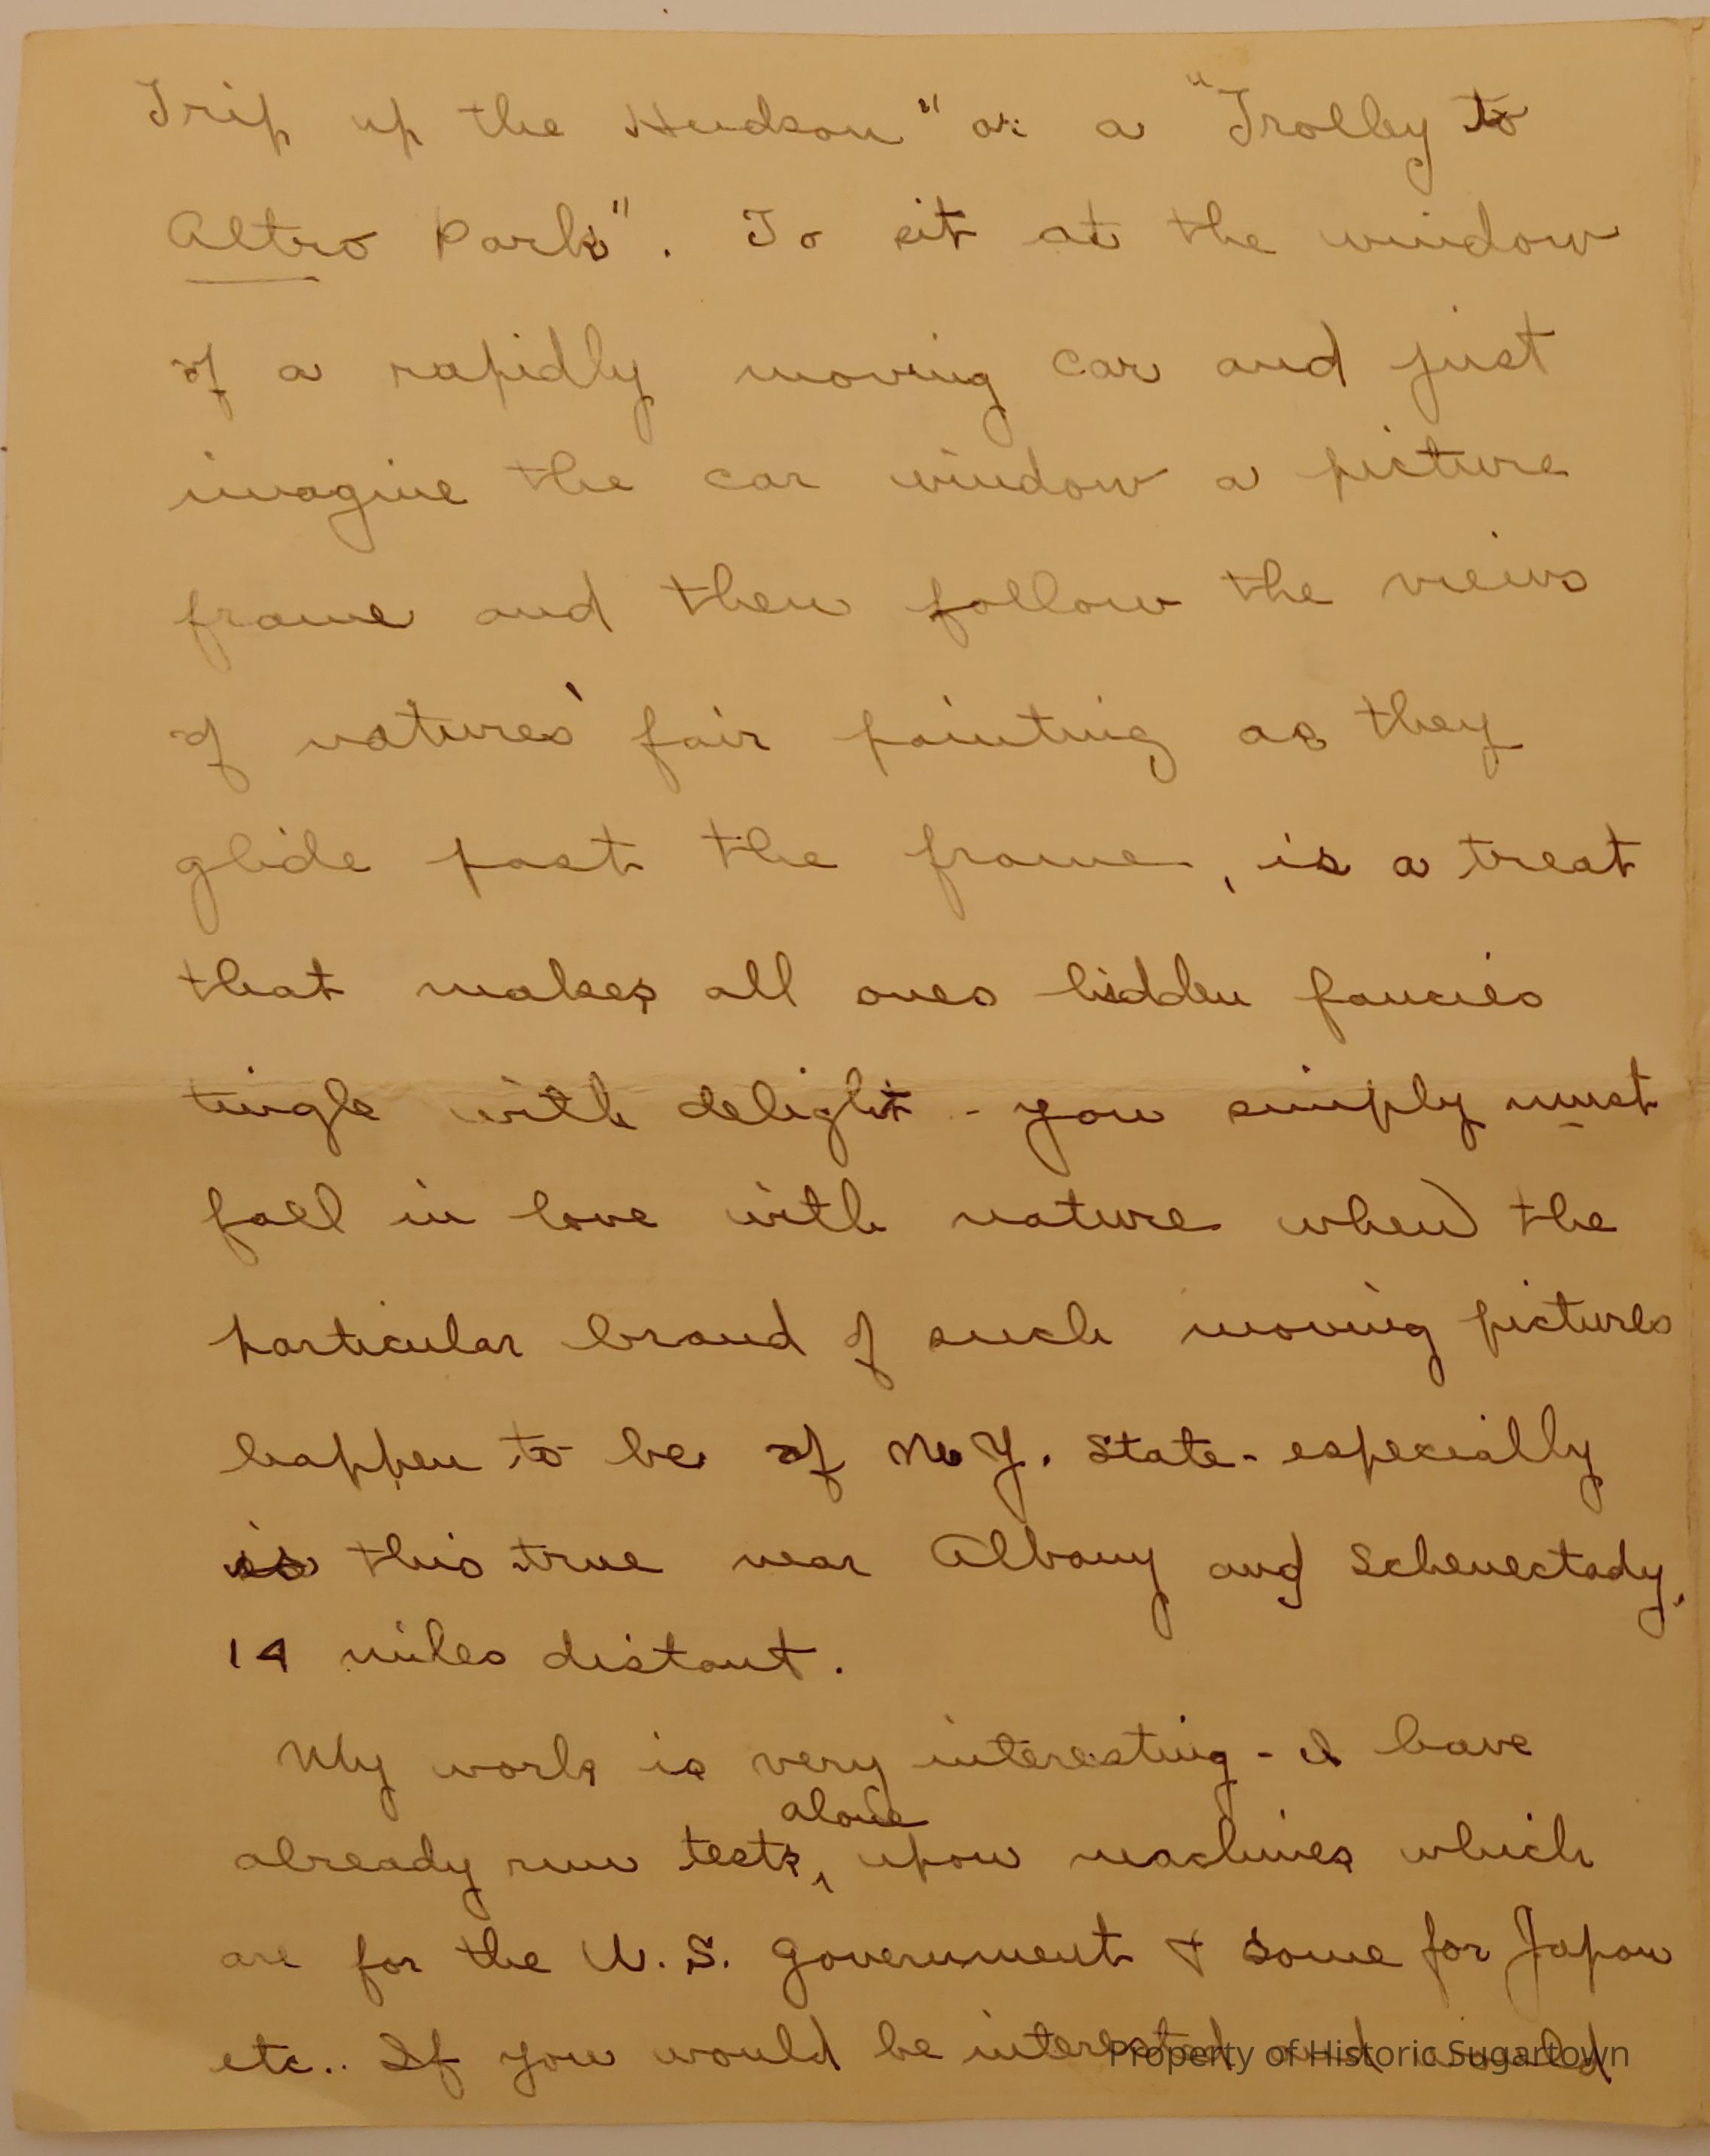 Trip up the Hudson" or a "Trolley to
Altro Park". To sit at the window
of a rapidly moving car and just
imagine the car window a picture
frame and then follow the views
of natures' fair painting as they
glide past the frame, is a treat
that makes all ones hidden fancies
tingle with delight - you simply must
fall in love with nature when the
particular brand of such moving pictures
happen to be of N.Y. State - especially
is this true near Albany and Schenectady,
14 miles distant.
My work is very interesting - I have
alone
already run tests, upon machines which
are for the U.S. Government + some for Japan
etc.. If you would be interested and would
Property of Historic Sugartown